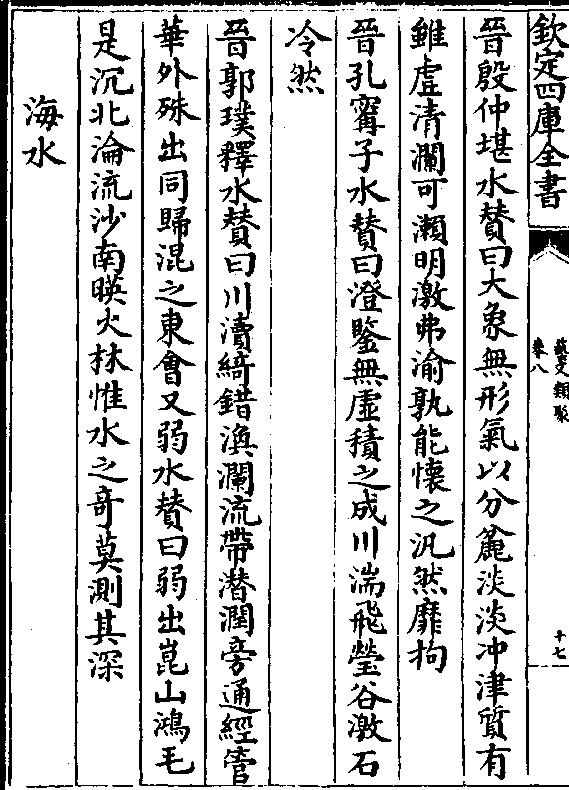 欽定四庫全書
藝文類聚
卷八
十七
晉殷仲堪水賛曰大象無形氣以分麄淡淡冲津質有
雖虚清瀾可瀬明激弗渝孰能懐之汎然靡拘
晉孔寗子水賛曰澄鑒無虚積之成川湍飛瑩谷激石
冷然
晉郭璞釋水賛曰川瀆綺錯渙瀾流帶潜潤旁通經管
華外殊出同歸混之東會又弱水賛曰弱出崑山鴻毛
是沉北淪流沙南暎火林惟水之竒莫測其深
海水